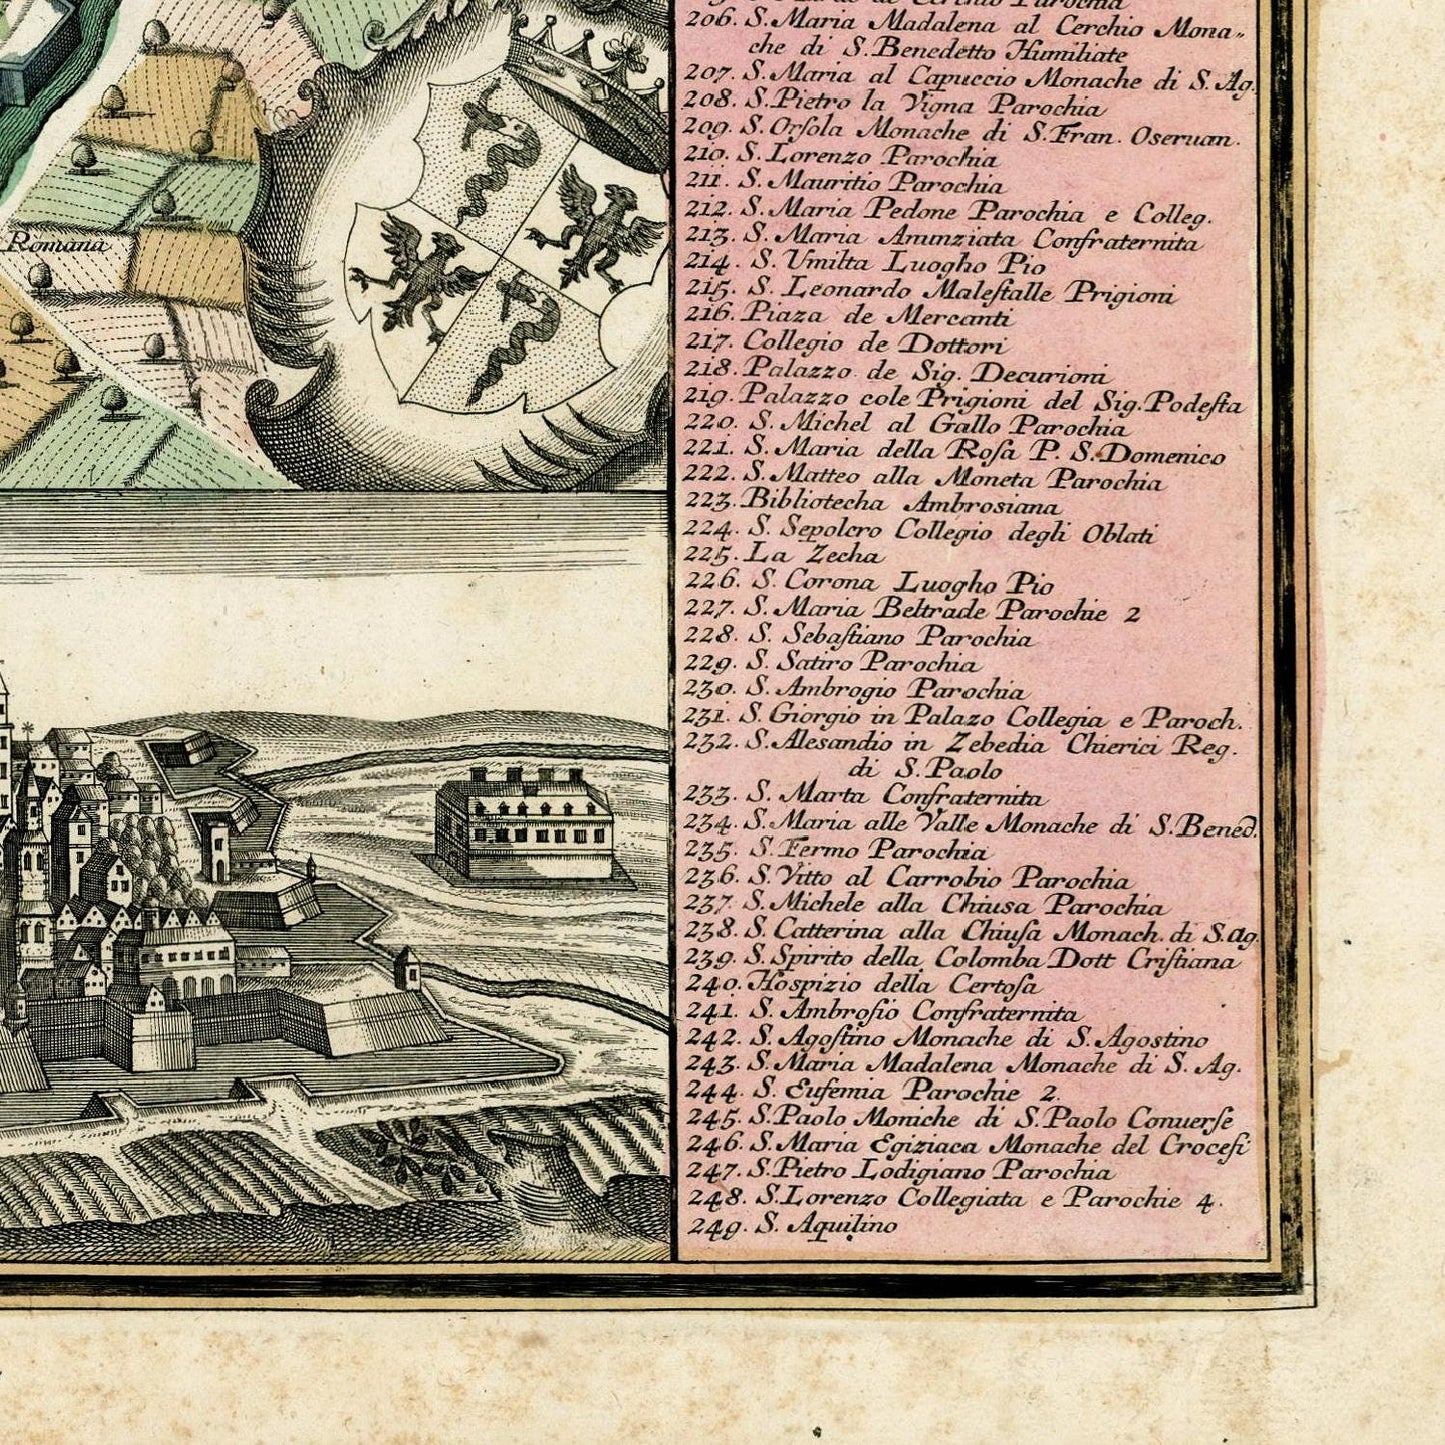 Parochia
206. S. Maria Madalena al Cerchio Mona„
che di S. Benedetto Humiliate
207. S. Maria al Capuccio Monache di S. Ag.
208. S. Pietro la Vigna Parochia
209. S. Orſola Monache di S. Fran. Oseruan.
210. S. Lorenzo Parochia
211. S. Mauritio Parochia
212. S. Maria Pedone Parochia e Colleg.
213. S. Maria Anunziata Confraternita
214. S. Umilta Luogho Pio
215. S. Leonardo Maleſtalle Prigioni
216. Piaza de Mercanti
217. Collegio de Dottori
218. Palazzo de Sig. Decurioni
219. Palazzo cole Prigioni del Sig. Podeſta
220. S. Michel al Gallo Parochia
221. S. Maria della Roſa P. S. Domenico
222. S. Matteo alla Moneta Parochia
223. Bibliotecha Ambrosiana
224. S. Sepolcro Collegio degli Oblati
225. La Zecha
226. S. Corona Luogho Pio
227. S. Maria Beltrade Parochie 2
228. S. Sebaſtiano Parochia
229. S. Satiro Parochia
230. S. Ambrogio Parochia
231. S. Giorgio in Palazo Collegia e Paroch.
232. S. Alesandio in Zebedia Chierici Reg.
di S. Paolo
233. S. Marta Confraternita
234. S. Maria alle Valle Monache di S. Bened.
235. S. Fermo Parochia
236. S. Vitto al Carrobio Parochia
237. S. Michele alla Chiusa Parochia
238. S. Catterina alla Chiuſa Monach. di S. Ag.
239. S. Spirito della Colomba Dott Criſtiana
240. Hospizio della Certoſa
241. S. Ambroſio Confraternita
242. S. Agoſtino Monache di S. Agostino
243. S. Maria Madalena Monache di S. Ag.
244. S. Eufemia Parochie 2.
245. S. Paolo Moniche di S. Paolo Conuerſe
246. S. Maria Egiziaca Monache del Croceſi
247. S. Pietro Lodigiano Parochia
248. S. Lorenzo Collegiata e Parochie 4.
249. S. Aquilino
Romana